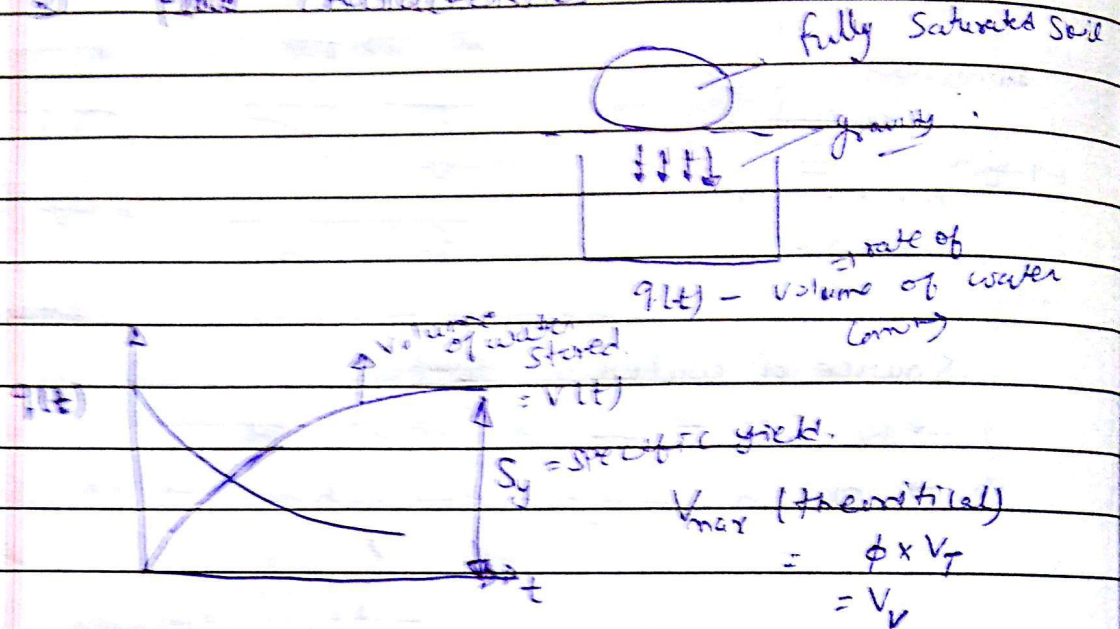 fully Saturated Soil
gravity
⇒ rate of
q(t) – volume of water
volume
of water
stored
= V(t)
q(t)
Sy = specific yield.
t
Vmax (theoritical)
= ϕ x VT
= Vv